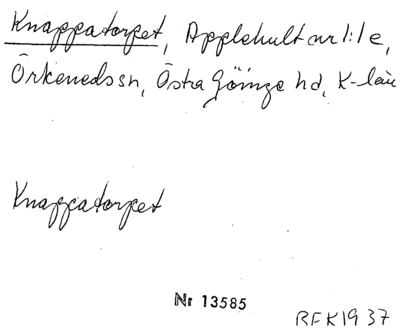 Knappatorpet, Applehult nr 1:1 e,
Örkeneds sn, Östra Göinge hd, K-län
Knappatorpet
Nr 13585
RFK 1937